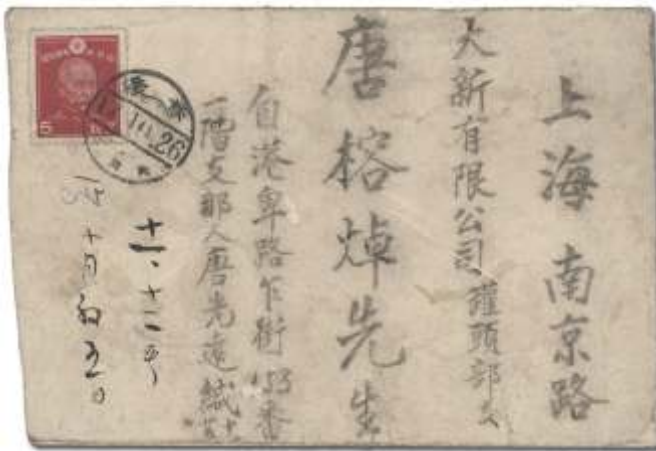 上海南京路
大新有限公司罐頭部交
唐榕焯先生
自港卑路乍街153番
一階支那人唐先遠緘
十一、十二
十月初五日
5
26